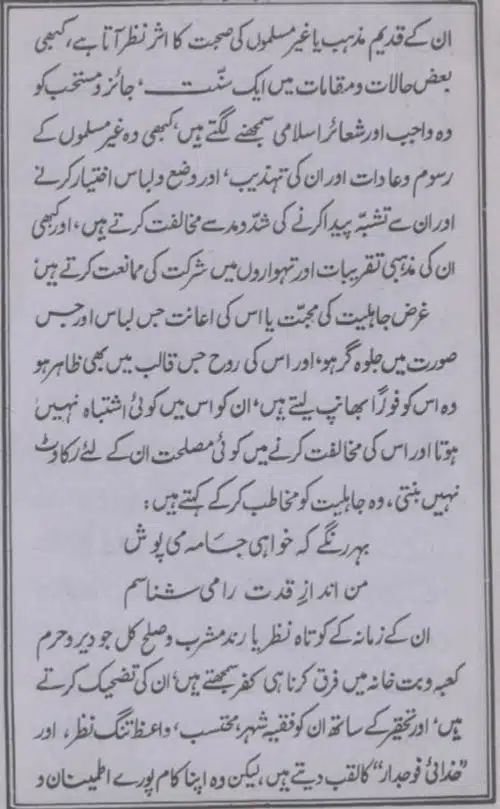 ان کے قدیم مذہب یا غیر مسلموں کی صحبت کا اثر نظر آتا ہے، کبھی
بعض حالات و مقامات میں ایک سنّت، جائز و مستحب کو
وہ واجب اور شعائر اسلامی سمجھنے لگتے ہیں، کبھی وہ غیر مسلموں کے
رسوم و عادات اور ان کی تہذیب، اور وضع و لباس اختیار کرنے
اور ان سے تشبّہ پیدا کرنے کی شدّ و مد سے مخالفت کرتے ہیں، اور کبھی
ان کی مذہبی تقریبات اور تہواروں میں شرکت کی ممانعت کرتے ہیں،
غرض جاہلیت کی محبّت یا اس کی اعانت جس لباس اور جس
صورت میں جلوہ گر ہو، اور اس کی روح جس قالب میں بھی ظاہر ہو
وہ اس کو فوراً بھانپ لیتے ہیں، ان کو اس میں کوئی اشتباہ نہیں
ہوتا اور اس کی مخالفت کرنے میں کوئی مصلحت ان کے لئے رکاوٹ
نہیں بنتی، وہ جاہلیت کو مخاطب کر کے کہتے ہیں:
بہر رنگے کہ خواہی جامہ می پوش
من اندازِ قدت را می شناسم
ان کے زمانہ کے کوتاہ نظر یا رند مشرب و صلح کل جو دیر و حرم
کعبہ و بت خانہ میں فرق کرنا ہی کفر سمجھتے ہیں، ان کی تضحیک کرتے
ہیں، اور تحقیر کے ساتھ ان کو فقیہ شہر، محتسب، واعظ تنگ نظر، اور
"خدائی فوجدار" کا لقب دیتے ہیں، لیکن وہ اپنا کام پورے اطمینان و